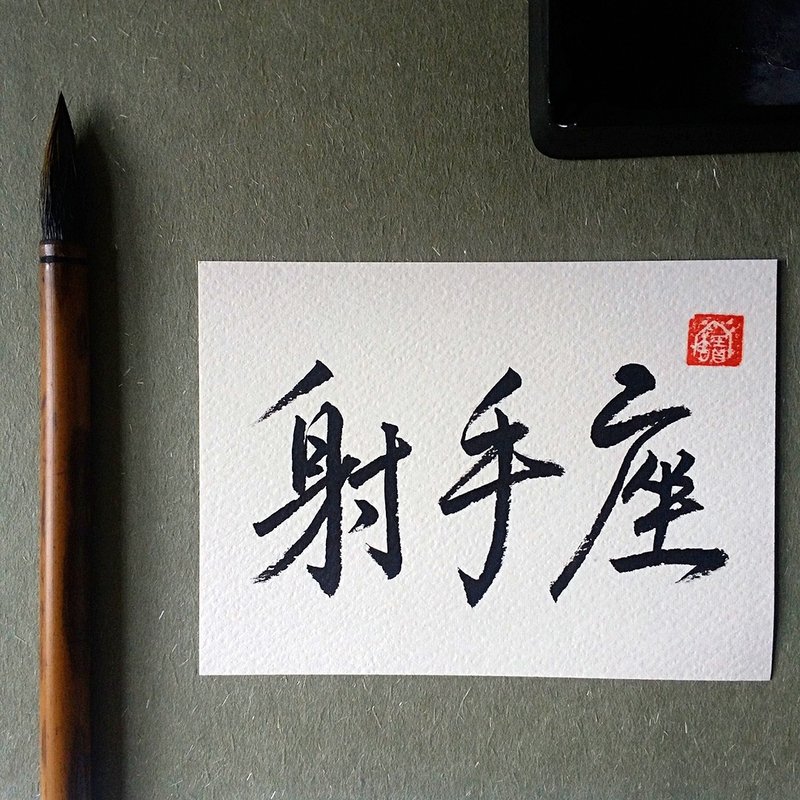 射手座